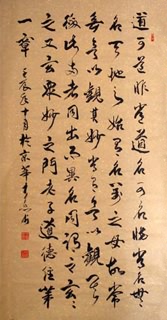 道可道非常道名可名非常名無
名天地之始有名萬物之母故常
無欲以觀其妙常有欲以觀其
徼此兩者同出而異名同謂之玄玄
之又玄眾妙之門老子道德經第
一章 壬辰年十月於京華